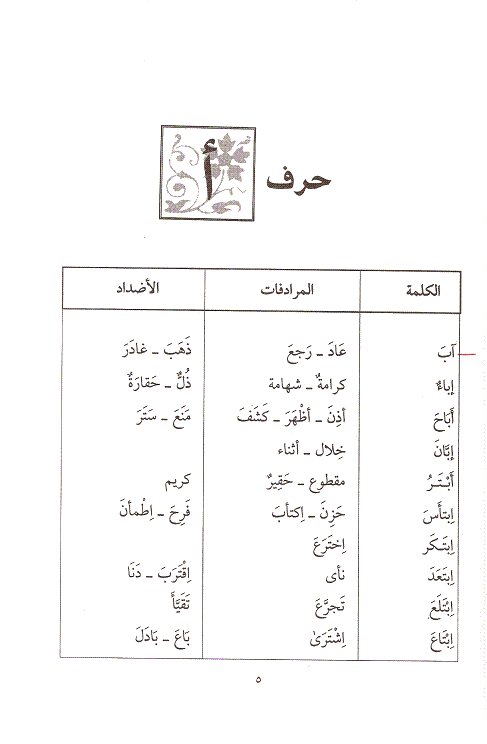 حرف أ
الكلمة المرادفات الأضداد
آبَ عَادَ ـ رَجعَ ذَهَبَ ـ غادَرَ
إباءٌ كرامةٌ ـ شهامة ذُلٌّ ـ حَقارَةٌ
أَبَاحَ أذِنَ ـ أظْهَرَ ـ كَشَفَ مَنَعَ ـ سَتَرَ
إبَّانَ خِلال ـ أثناء
أَبْتَـرُ مقطوع ـ حَقِيرٌ كريم
اِبتأَسَ حَزِنَ ـ اِكتأبَ فَرِحَ ـ اِطْمأنَ
اِبتَـكَر اِختَرَعَ
اِبتَعَدَ نأى اِقْتَرَبَ ـ دَنَا
اِبْتَلَعَ تَجرَّعَ تَقَيَّأَ
اِبْتَاعَ اِشْتَرَىٰ بَاعَ ـ بَادَلَ
٥